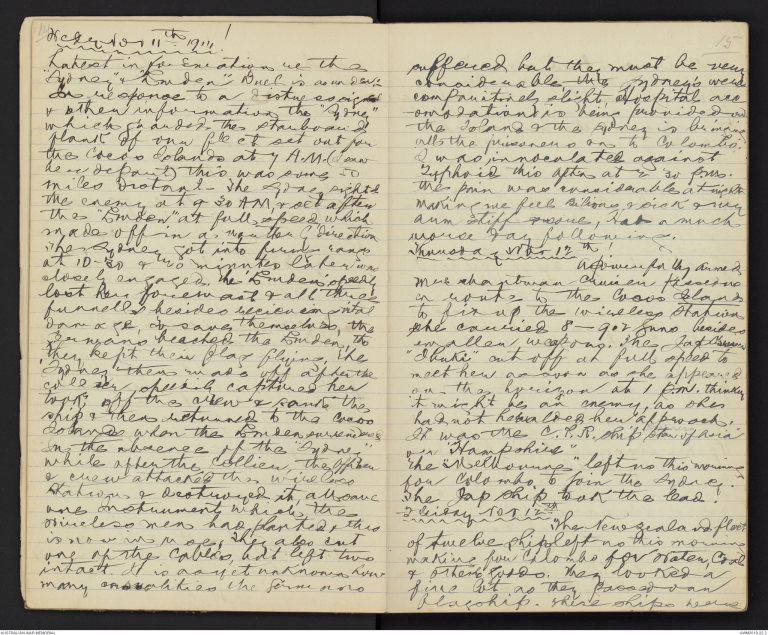 Weds Nov 11th 1914!
Latest information re the
"Sydney" & "Emden" Duel is as under:
In response to a distress signal
& other information the "Sydney"
which guarded the starboard
flank of our fleet set out for
the Cocos Islands at 7 A.M. (I saw
her depart) this was some 50
miles distant. The Sydney sighted
the enemy at 9.30 AM, & set after
the "Emden" at full speed which
made off in a direction
The Sydney got into firing range
at 10.30 & two minutes later was
closely engaged, the Emden speedily
lost her foremast & all three
funnels besides receiving vital
damage. To save themselves, the
Germans beached the Emden, tho
they kept their flag flying, the
"Sydney" then made off after the
collier, speedily captured her
took off the crew & sank the
ship & then returned to the Cocos
Islands when the Emden surrendered
In the absence of the "Sydney"
while after the Collier, the Officer
& crew attacked the wireless
Station & destroyed it, all save
one instrument which the
wireless men had planted & this
is now in use, They also cut
one of the cables, but left two
intact. It is as yet unknown how
many casualities the Germans
15
suffered but they must be very
considerable the Sydney's were
comparitively slight, Hospital acc-
omodation is being provided on
the Island & the Sydney is bringing
all the prisoners on to Colombo.
I was innoculated against
Typhoid this afternoon at 2.30 p.m.
the pain was considerable at night
making me feel bilious & sick & my
arm stiff & sore, Had a much
worse day following.
Thursday Nov 12th!
A Power for thy armed
merchantman cruiser
en route to the Cocos Islands
to fix up the wireless Stations
she carried 8 - guns besides
smaller weapons. The Jap Cruiser
"Ibuki" cut off at full speed to
meet her as soon as she appeared
on the horizon at 1 p.m. thinking
it might be an enemy, as she
had not heralded her approach.
It was the C.P.R. ship Star of Asia
or "Hampshire"
The "Melbourne" left us this morning
for Colombo to join the Sydney.
The Jap ship took the lead.
Friday Nov 13th
The New Zealand fleet
of twelve ships left us this morning
making for Colombo for Water, Coal
& other goods. They looked a
fine lot as they passed our
flagship. Three ships were
AUSTRALIAN WAR MEMORIAL
AWM2019.22.3